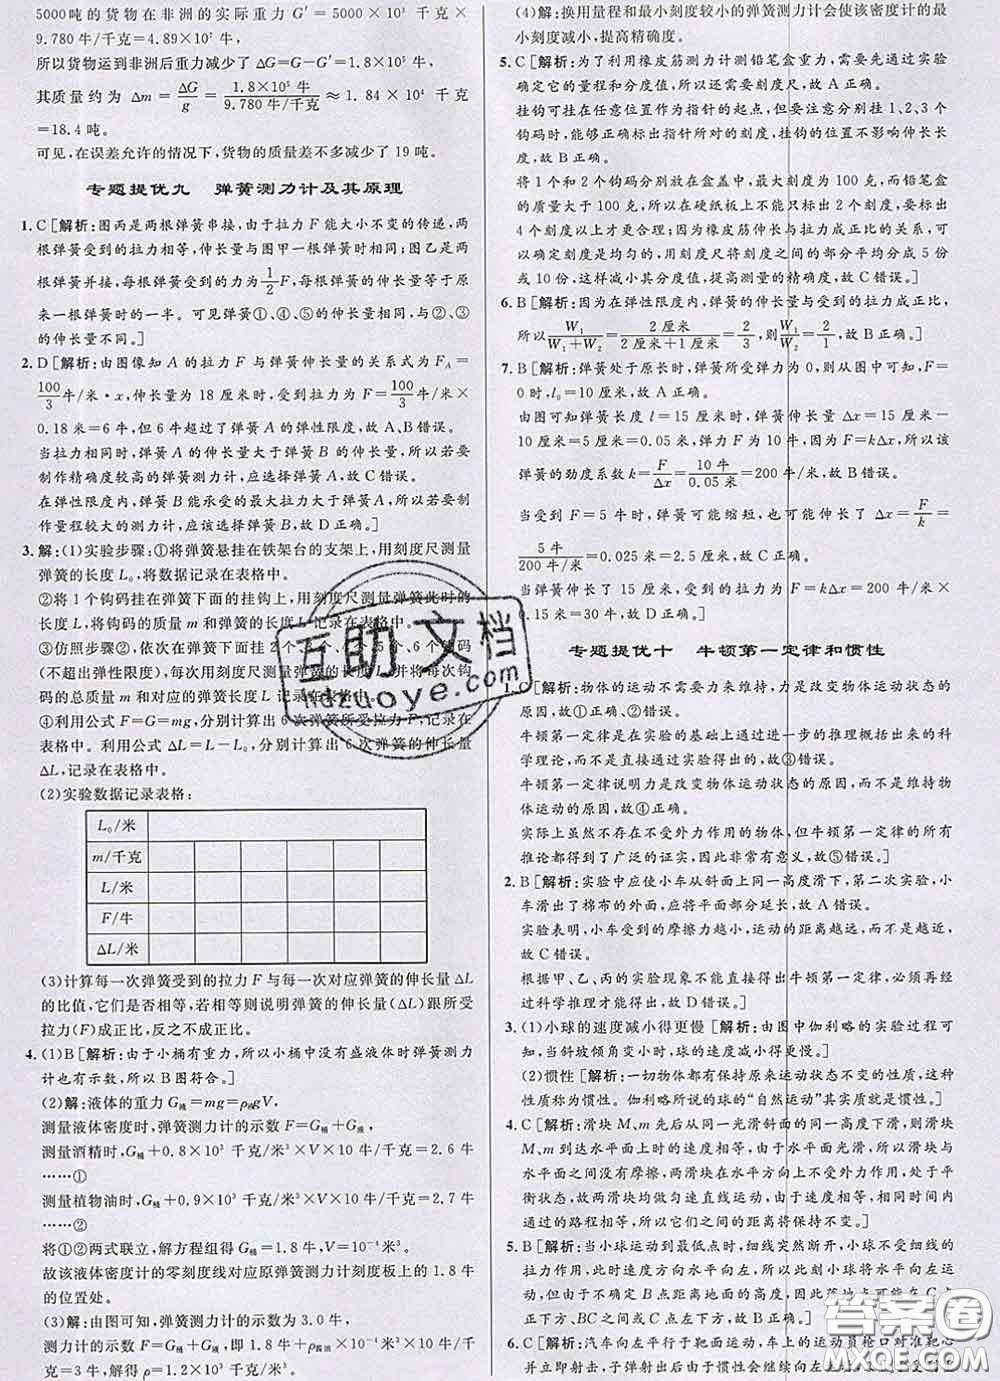 5000吨的货物在非洲的实际重力 G′=5000×10³ 千克×
9.780 牛/千克=4.89×10⁷ 牛,
所以货物运到非洲后重力减少了 ΔG=G-G′=1.8×10⁵ 牛,
其质量约为 Δm=ΔG/g=1.8×10⁵牛/9.780 牛/千克≈1.84×10⁴ 千克
=18.4 吨。
可见,在误差允许的情况下,货物的质量差不多减少了 19 吨。
专题提优九 弹簧测力计及其原理
1. C [解析:图丙是两根弹簧串接,由于拉力 F 能大小不变的传递,两
根弹簧受到的拉力相等,伸长量与图甲一根弹簧时相同;图乙是两
根弹簧并接,每根弹簧受到的力为1/2F,每根弹簧伸长量等于原
来一根弹簧时的一半。可见弹簧①、④、⑤的伸长量相同,与②、③
的伸长量不同。]
2. D [解析:由图像知 A 的拉力 F 与弹簧伸长量的关系式为 F_A=
100/3牛/米·x,伸长量为 18 厘米时,受到的拉力 F=100/3牛/米×
0.18米=6 牛,但 6 牛超过了弹簧 A 的弹性限度,故 A、B 错误。
当拉力相同时,弹簧 A 的伸长量大于弹簧 B 的伸长量,所以若要
制作精确度较高的弹簧测力计,应选择弹簧 A,故 C 错误。
在弹性限度内,弹簧 B 能承受的最大拉力大于弹簧 A,所以若要制
作量程较大的测力计,应该选择弹簧 B,故 D 正确。]
3. 解:(1)实验步骤:①将弹簧悬挂在铁架台的支架上,用刻度尺测量
弹簧的长度 L₀,将数据记录在表格中。
②将 1 个钩码挂在弹簧下面的挂钩上,用刻度尺测量弹簧此时的
长度 L,将钩码的质量 m 和弹簧的长度 L 记录在表格中。
③仿照步骤②,在弹簧下面挂上 2 个、3 个、4 个、5 个、6 个钩码
(不超出弹性限度),每次都测量弹簧的长度 L,并将每次钩
码的总质量 m 和对应的弹簧长度 L 记录在表格中。
④利用公式 F=G=mg,分别计算出 6 次弹簧所受拉力 F,记录在
表格中。利用公式 ΔL=L-L₀,分别计算出 6 次弹簧的伸长量
ΔL,记录在表格中。
(2)实验数据记录表格:
L₀/米
m/千克
L/米
F/牛
ΔL/米
(3)计算每一次弹簧受到的拉力 F 与每一次对应弹簧的伸长量 ΔL
的比值,它们是否相等,若相等则说明弹簧的伸长量(ΔL)跟所受
拉力(F)成正比,反之不成正比。
4. (1)B [解析:由于小桶有重力,所以小桶中没有盛液体时弹簧测力
计也有示数,所以 B 图符合。]
(2)解:液体的重力 G液=mg=ρ液gV,
测量液体密度时,弹簧测力计的示数 F=G桶+G液,
测量酒精时,G桶+0.8×10³ 千克/米³×V×10 牛/千克=2.6 牛
……①
测量植物油时,G桶+0.9×10³ 千克/米³×V×10 牛/千克=2.7 牛
……②
将①②两式联立,解方程组得 G桶=1.8 牛,V=10⁻⁴ 米³。
故该液体密度计的零刻度线对应原弹簧测力计刻度板上的 1.8 牛
的位置处。
(3)解:由图可知,弹簧测力计的示数为 3.0 牛,
测力计的示数 F=G桶+G液,即 1.8 牛+ρ酱油×10⁻⁴ 米³×10 牛/千
克=3 牛,解得 ρ=1.2×10³ 千克/米³。
(4)解:换用量程和最小刻度较小的弹簧测力计会使该密度计的最
小刻度减小,提高精确度。
5. C [解析:为了利用橡皮筋测力计测铅笔盒重力,需要先通过实验
确定它的量程和分度值,所以还需要刻度尺,故 A 正确。
挂钩可挂在任意位置作为指针的起点,但要充分分别挂 1、2、3 个
钩码时,能够正确标出指针所对的刻度,挂钩的位置不影响伸长长
度,故 B 正确。
将 1 个和 2 个钩码分别放在盒盖中,最大刻度为 100 克,而铅笔盒
的质量大于 100 克,所以在硬纸板上不能只标出 2 个刻度,要标出
4 个刻度以上才更合理;因为橡皮筋伸长与拉力成正比的关系,可
以确定刻度是均匀的,用刻度尺将刻度之间的部分平均分成 5 份
或 10 份,这样减小其分度值,提高测量的精确度,故 C 错误。]
6. B [解析:因为在弹性限度内,弹簧的伸长量与受到的拉力成正比,
所以W₁/W₁+W₂=2厘米/2厘米+1厘米=2/3,则W₁/W₂=2/1,故 B 正确。]
7. B [解析:弹簧处于原长时,弹簧所受弹力为 0,则从图中可知,F=
0 时,l₀=10 厘米,故 A 正确。
由图可知弹簧长度 l=15 厘米时,弹簧伸长量 Δx=15 厘米-
10 厘米=5 厘米=0.05 米,弹力 F=10 牛,因为 F=kΔx,所以该
弹簧的劲度系数 k=F/Δx=10牛/0.05米=200 牛/米,故 B 错误。
当受到 F=5 牛时,弹簧可能缩短,也可能伸长了 Δx=F/k=
5牛/200牛/米=0.025 米=2.5 厘米,故 C 正确。
当弹簧伸长了 15 厘米,受到的拉力为 F=kΔx=200 牛/米×
0.15米=30 牛,故 D 正确。]
专题提优十 牛顿第一定律和惯性
[解析:物体的运动不需要力来维持,力是改变物体运动状态的
原因,故①正确,②错误。
牛顿第一定律是在实验的基础上通过进一步的推理概括出来的科
学理论,而不是猜想,故③错误。
牛顿第一定律说明力是改变物体运动状态的原因,而不是维持物
体运动的原因,故④正确。
实际上虽然不存在不受外力作用的物体,但牛顿第一定律的所有
推论都得到了广泛的证实,因此是非常有意义的,故⑤错误。]
2. B [解析:实验中应使小车从斜面上同一高度滑下,第二次实验,小
车滑出了棉布的外面,应将平面部分延长,故 A 错误。
实验表明,小车受到的摩擦力越小,运动的距离越远,而不是越近,
故 C 错误。
根据甲、乙、丙的实验现象不能直接得出牛顿第一定律,必须再经
过科学推理才能得出,故 D 错误。]
3. (1)小球的速度减小得更慢 [解析:由图中伽利略的实验过程可
知,当斜坡倾角变小时,球的速度减小得更慢。]
(2)惯性 [解析:一切物体都有保持原来运动状态不变的性质,这种
性质称为惯性。伽利略所说的球的“自然运动”其实质就是惯性。]
4. C [解析:滑块 M、m 先后从同一光滑斜面的同一高度下滑,则滑块
M、m 到达水平面上时的速度相等,由于水平面光滑,所以滑块与
水平面之间没有摩擦,两滑块在水平方向上不受外力作用,处于平
衡状态,故两滑块均做匀速直线运动,由于速度相等,相同时间内
通过的路程相等,所以它们之间的距离将保持不变。]
5. B [解析:当小球运动到最低点时,细线突然断开,小球将不再受到
拉力作用,此时速度方向水平向左,所以此刻小球将水平向左运
动,但由于不确定 B 点距离地面的高度,所以最终可能在 C 点正上
方、BC 之间或 C 点左下方,故 B 正确。]
6. C [解析:汽车向左平行于靶面运动,车上的运动员枪口对准靶心
并立即射击,子弹射出后由于惯性会继续向左
互助文档
hdzuoye.com
答案圈
MXQE.COM